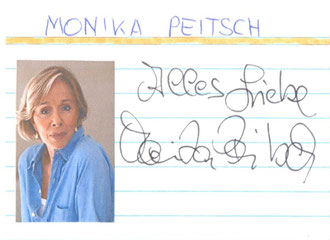 MONIKA PEITSCH
Alles Liebe
Monika Peitsch